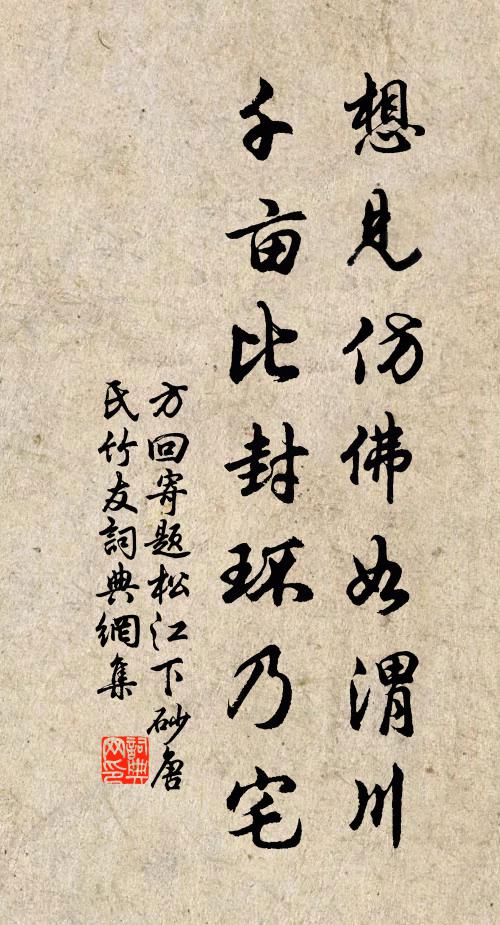 想见仿佛如渭川
千亩比封环乃宅
方回寄题松江下砂唐
氏竹友詞典網集
詞典
网印